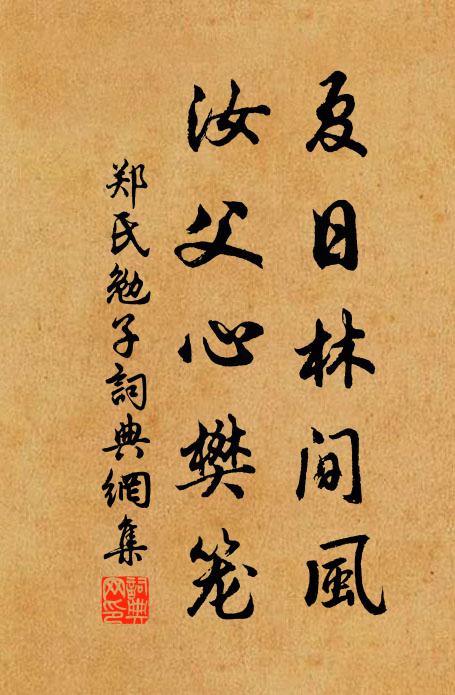 夏日林间風
汝父心樊笼
郑氏勉子詞典網集
詞典網印